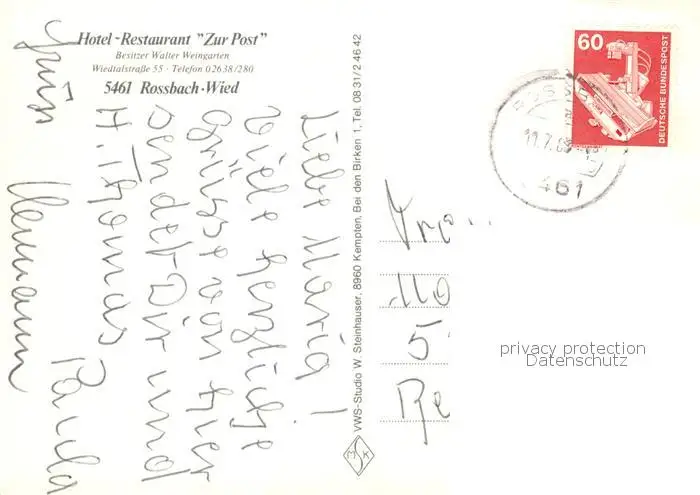 Hotel-Restaurant "Zur Post"
Besitzer Walter Weingarten
Wiedtalstraße 55 · Telefon 02638/280
5461 Rossbach·Wied
Liebe Maria!
Viele herzliche
Grüsse von hier
sendet Dir und
H. Thomas Paula
Hermann
VWS-Studio W. Steinhauser, 8960 Kempten, Bei den Birken 1, Tel. 08 31/2 46 42
MSK
60
DEUTSCHE BUNDESPOST
11.7.8
461
5
privacy protection
Datenschutz